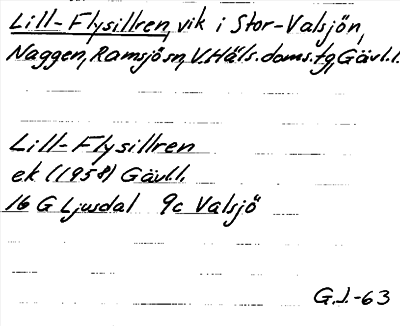 Lill-Flysillren, vik i Stor-Valsjön,
Naggen, Ramsjö sn, V. Häls. doms. tg, Gävl. l.
Lill-Flysillren
ek (1958) Gävl. l.
16 G Ljusdal 9c Valsjö
G.J.-63